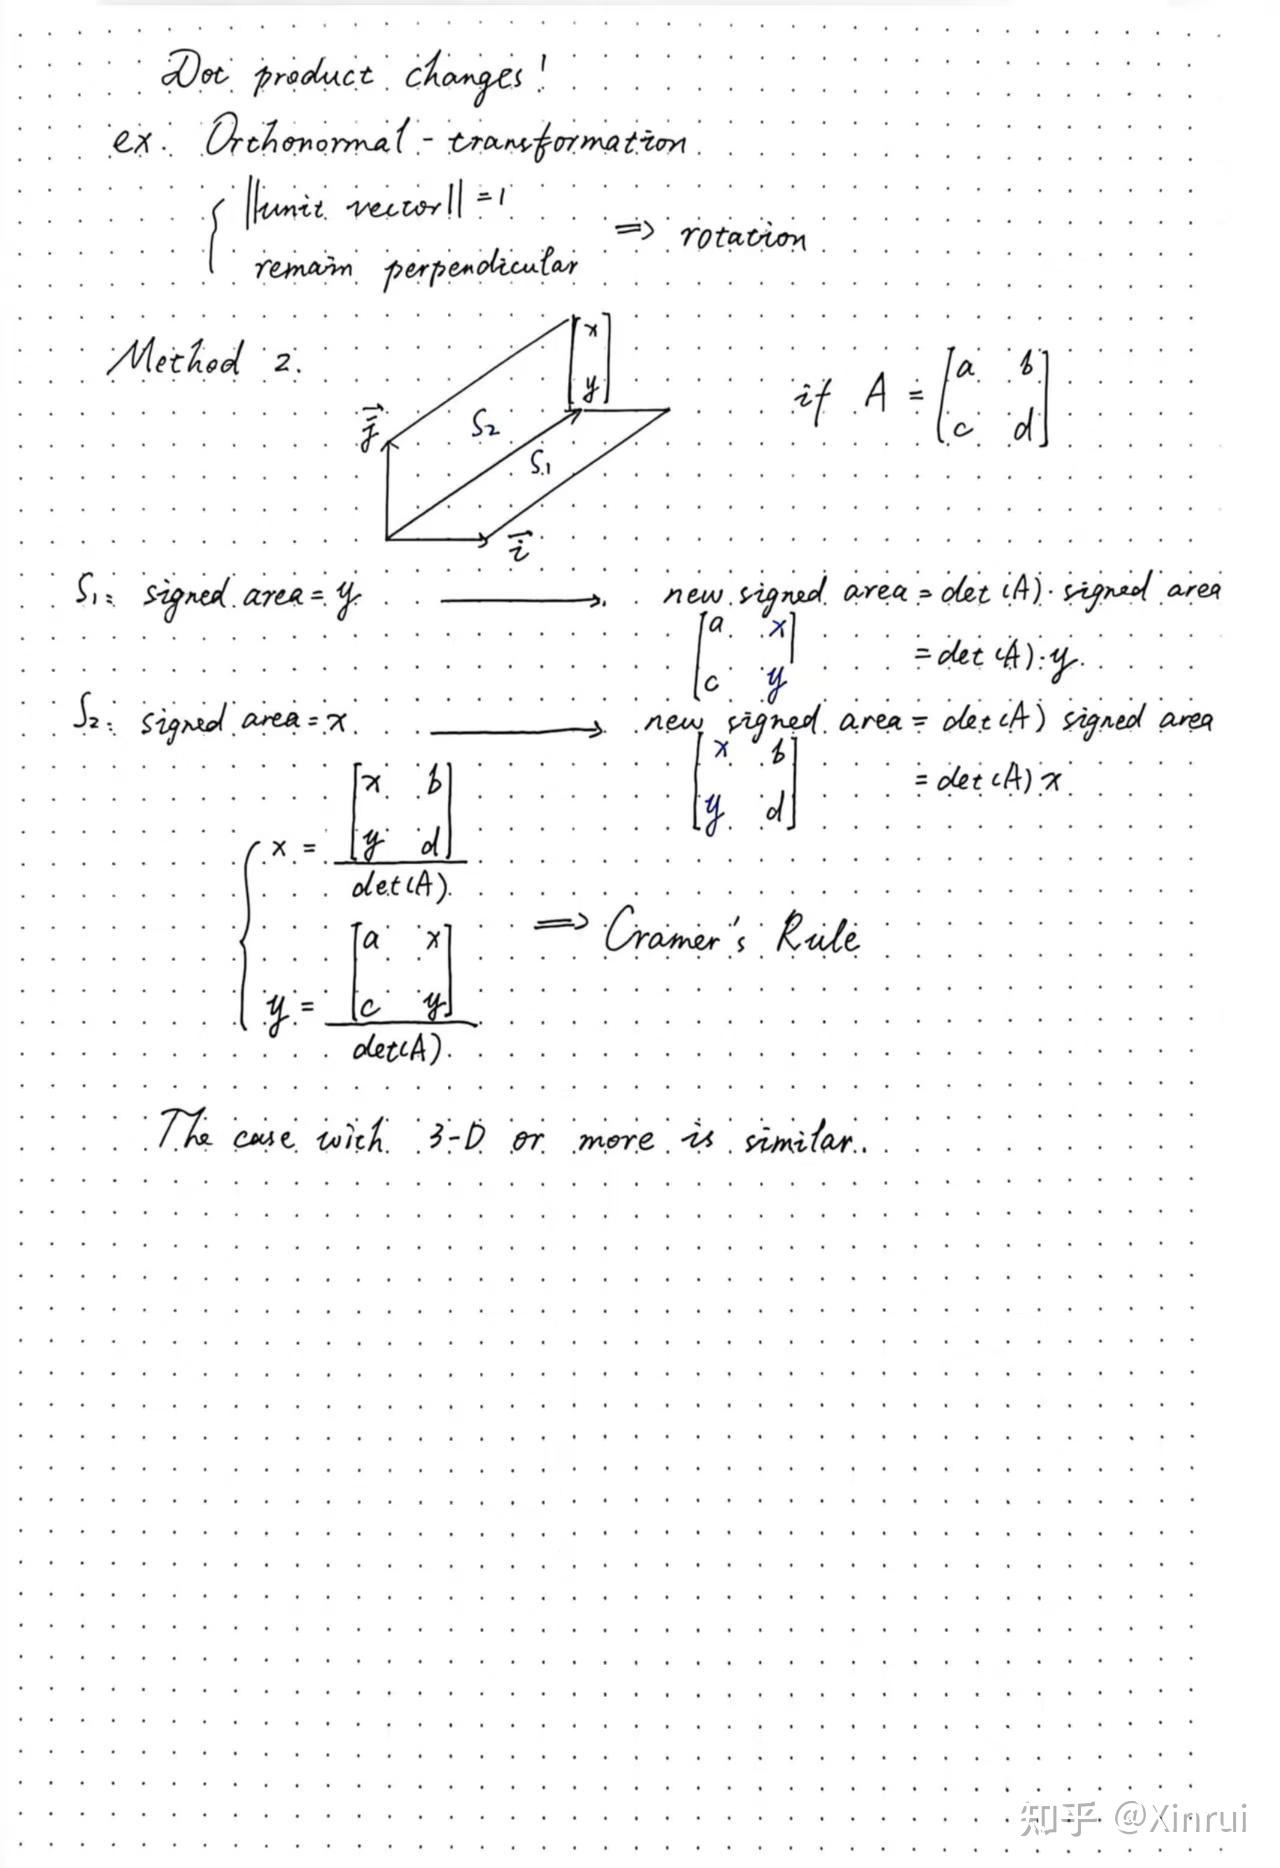 Dot product changes!
ex. Orthonormal-transformation
{ ||unit vector|| = 1
remain perpendicular
⇒ rotation
Method 2.
[x
y]
if A = [a b
c d]
j⃗
S₂
S₁
i⃗
S₁: signed area = y ⟶ new signed area = det(A)·signed area
[a x
c y]
= det(A)·y
S₂: signed area = x ⟶ new signed area = det(A) signed area
[x b
y d]
= det(A) x
{ x = [x b
y d]
det(A)
⇒ Cramer's Rule
y = [a x
c y]
det(A)
The case with 3-D or more is similar.
知乎 @Xinrui